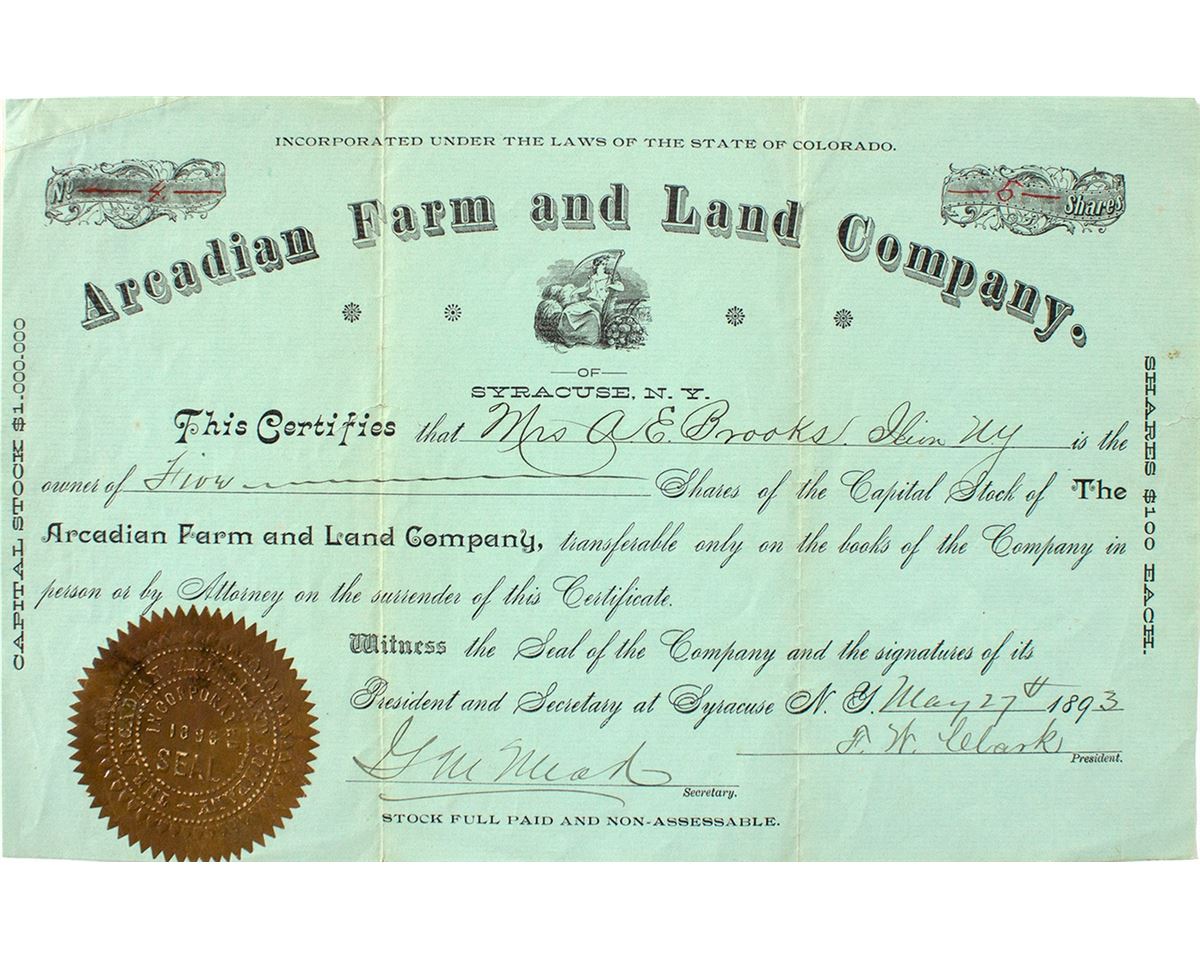 INCORPORATED UNDER THE LAWS OF THE STATE OF COLORADO.
No 4
5 Shares
Arcadian Farm and Land Company.
OF
SYRACUSE, N. Y.
CAPITAL STOCK $1.000.000
SHARES $100 EACH.
This Certifies that Mrs A. E. Brooks. Ilion NY is the
owner of Five Shares of the Capital Stock of The
Arcadian Farm and Land Company, transferable only on the books of the Company in
person or by Attorney on the surrender of this Certificate.
Witness the Seal of the Company and the signatures of its
President and Secretary at Syracuse N. Y. May 27th 1893
F. W. Clark
President.
G M Mead
Secretary.
STOCK FULL PAID AND NON-ASSESSABLE.
INCORPORATED
SEAL